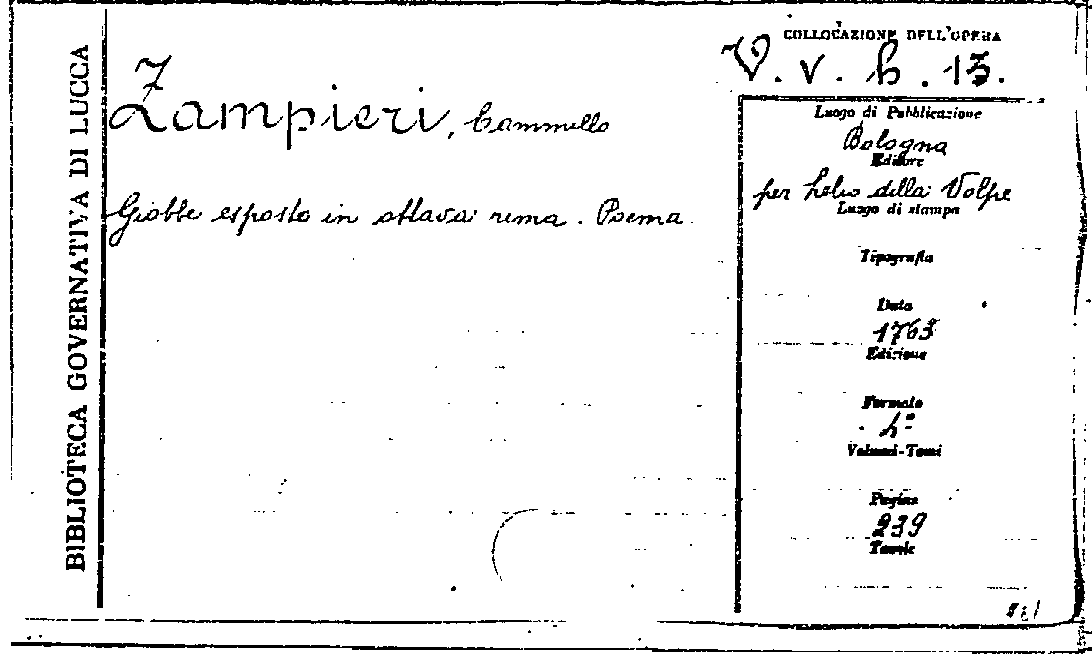 BIBLIOTECA GOVERNATIVA DI LUCCA
Zampieri, Cammillo
Giobbe esposto in ottava rima. Poema.
COLLOCAZIONE DELL'OPERA
V. v. h. 13.
Luogo di Pubblicazione
Bologna
Editore
per Lelio della Volpe
Luogo di stampa
Tipografia
Data
1763
Edizione
Formato
4°
Volumi-Tomi
Pagine
239
Tavole